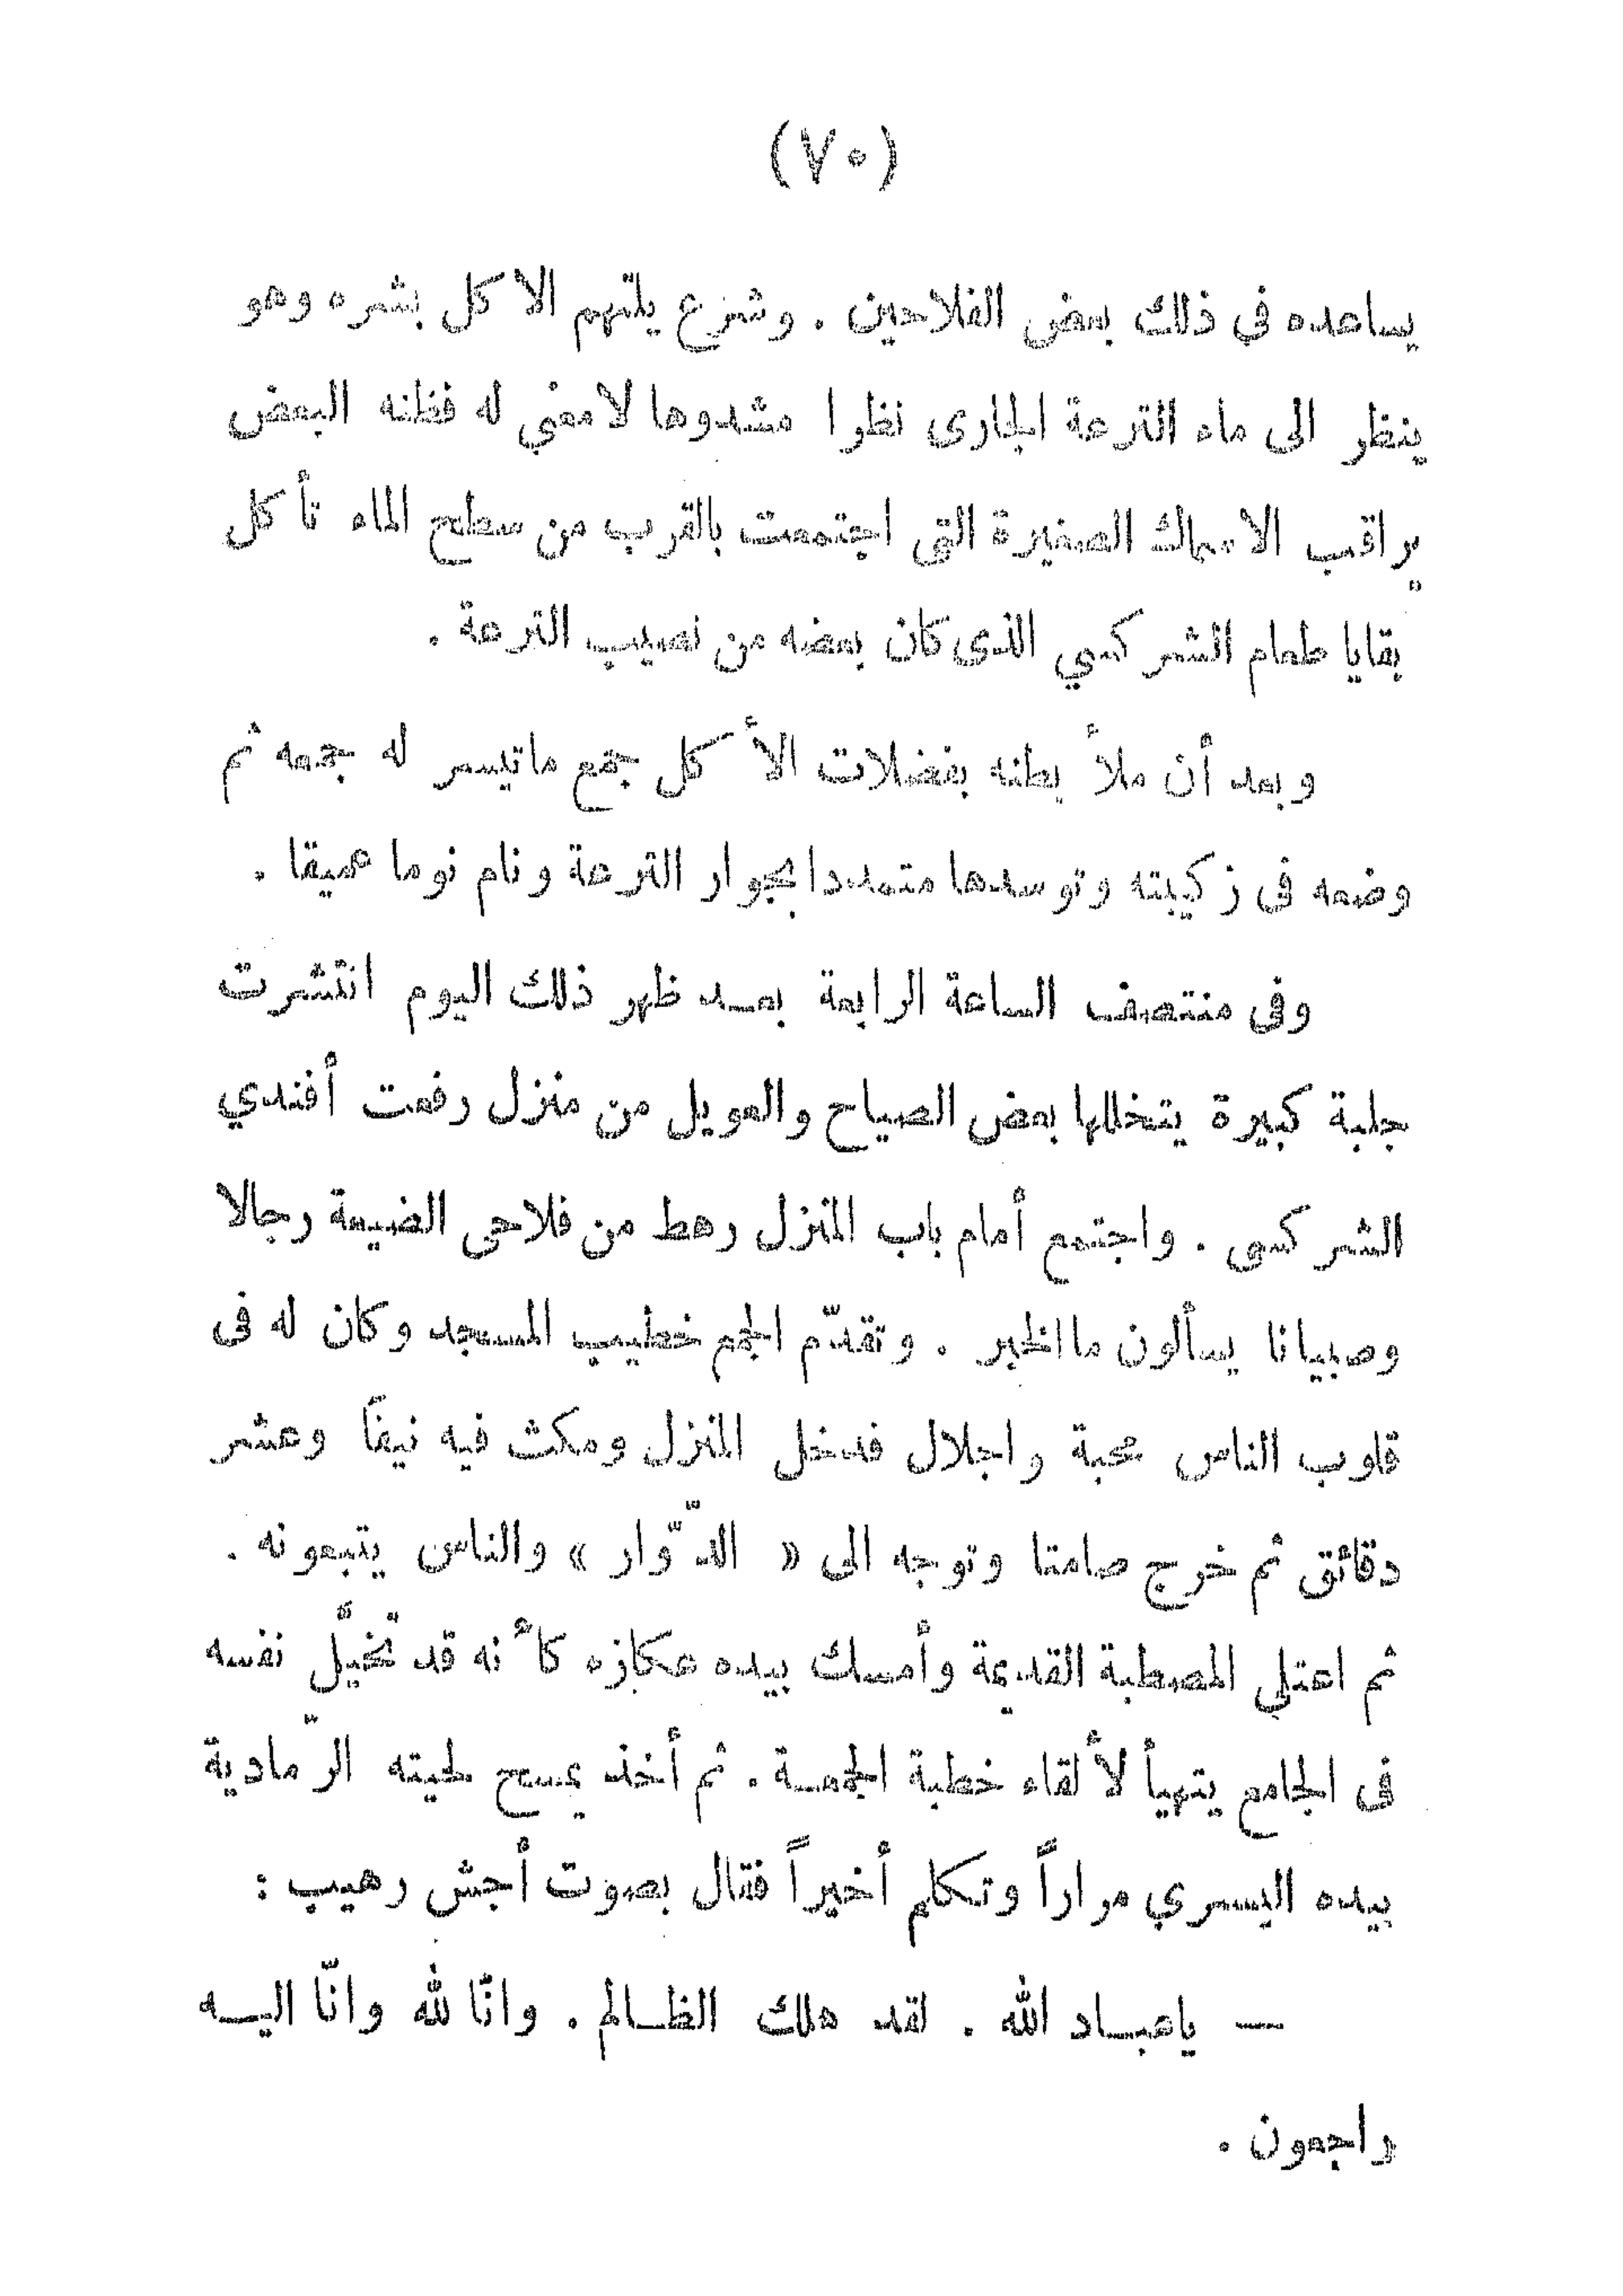 (٧٠)
يساعده في ذلك بعض الفلاحين . وشرع يلتهم الاكل بشره وهو
ينظر الى ماء الترعة الجارى نظرا مشدوها لامعني له فظنه البعض
يراقب الاسماك الصغيرة التى اجتمعت بالقرب من سطح الماء تأكل
بقايا طعام الشركسي الذى كان بعضه من نصيب الترعة .
وبعد أن ملأ بطنه بفضلات الأكل جمع ماتيسر له جمعه ثم
وضعه فى زكيبته وتوسدها متمددا بجوار الترعة ونام نوما عميقا .
وفى منتصف الساعة الرابعة بعد ظهر ذلك اليوم انتشرت
جلبة كبيرة يتخللها بعض الصياح والعويل من منزل رفعت أفندي
الشركسى . واجتمع أمام باب المنزل رهط من فلاحى الضيعة رجالا
وصبيانا يسألون ماالخبر . وتقدّم الجمع خطيب المسجد وكان له فى
قلوب الناس محبة واجلال فدخل المنزل ومكث فيه نيفاً وعشر
دقائق ثم خرج صامتا وتوجه الى « الدّوّار » والناس يتبعونه .
ثم اعتلي المصطبة القديمة وأمسك بيده عكازه كأنه قد تخيَّل نفسه
فى الجامع يتهيأ لألقاء خطبة الجمعة . ثم أخذ يمسح لحيته الرّمادية
بيده اليسري مراراً وتكلم أخيراً فقال بصوت أجش رهيب :
— ياعباد الله . لقد هلك الظالم . وانّا لله وانّا اليه
راجعون .